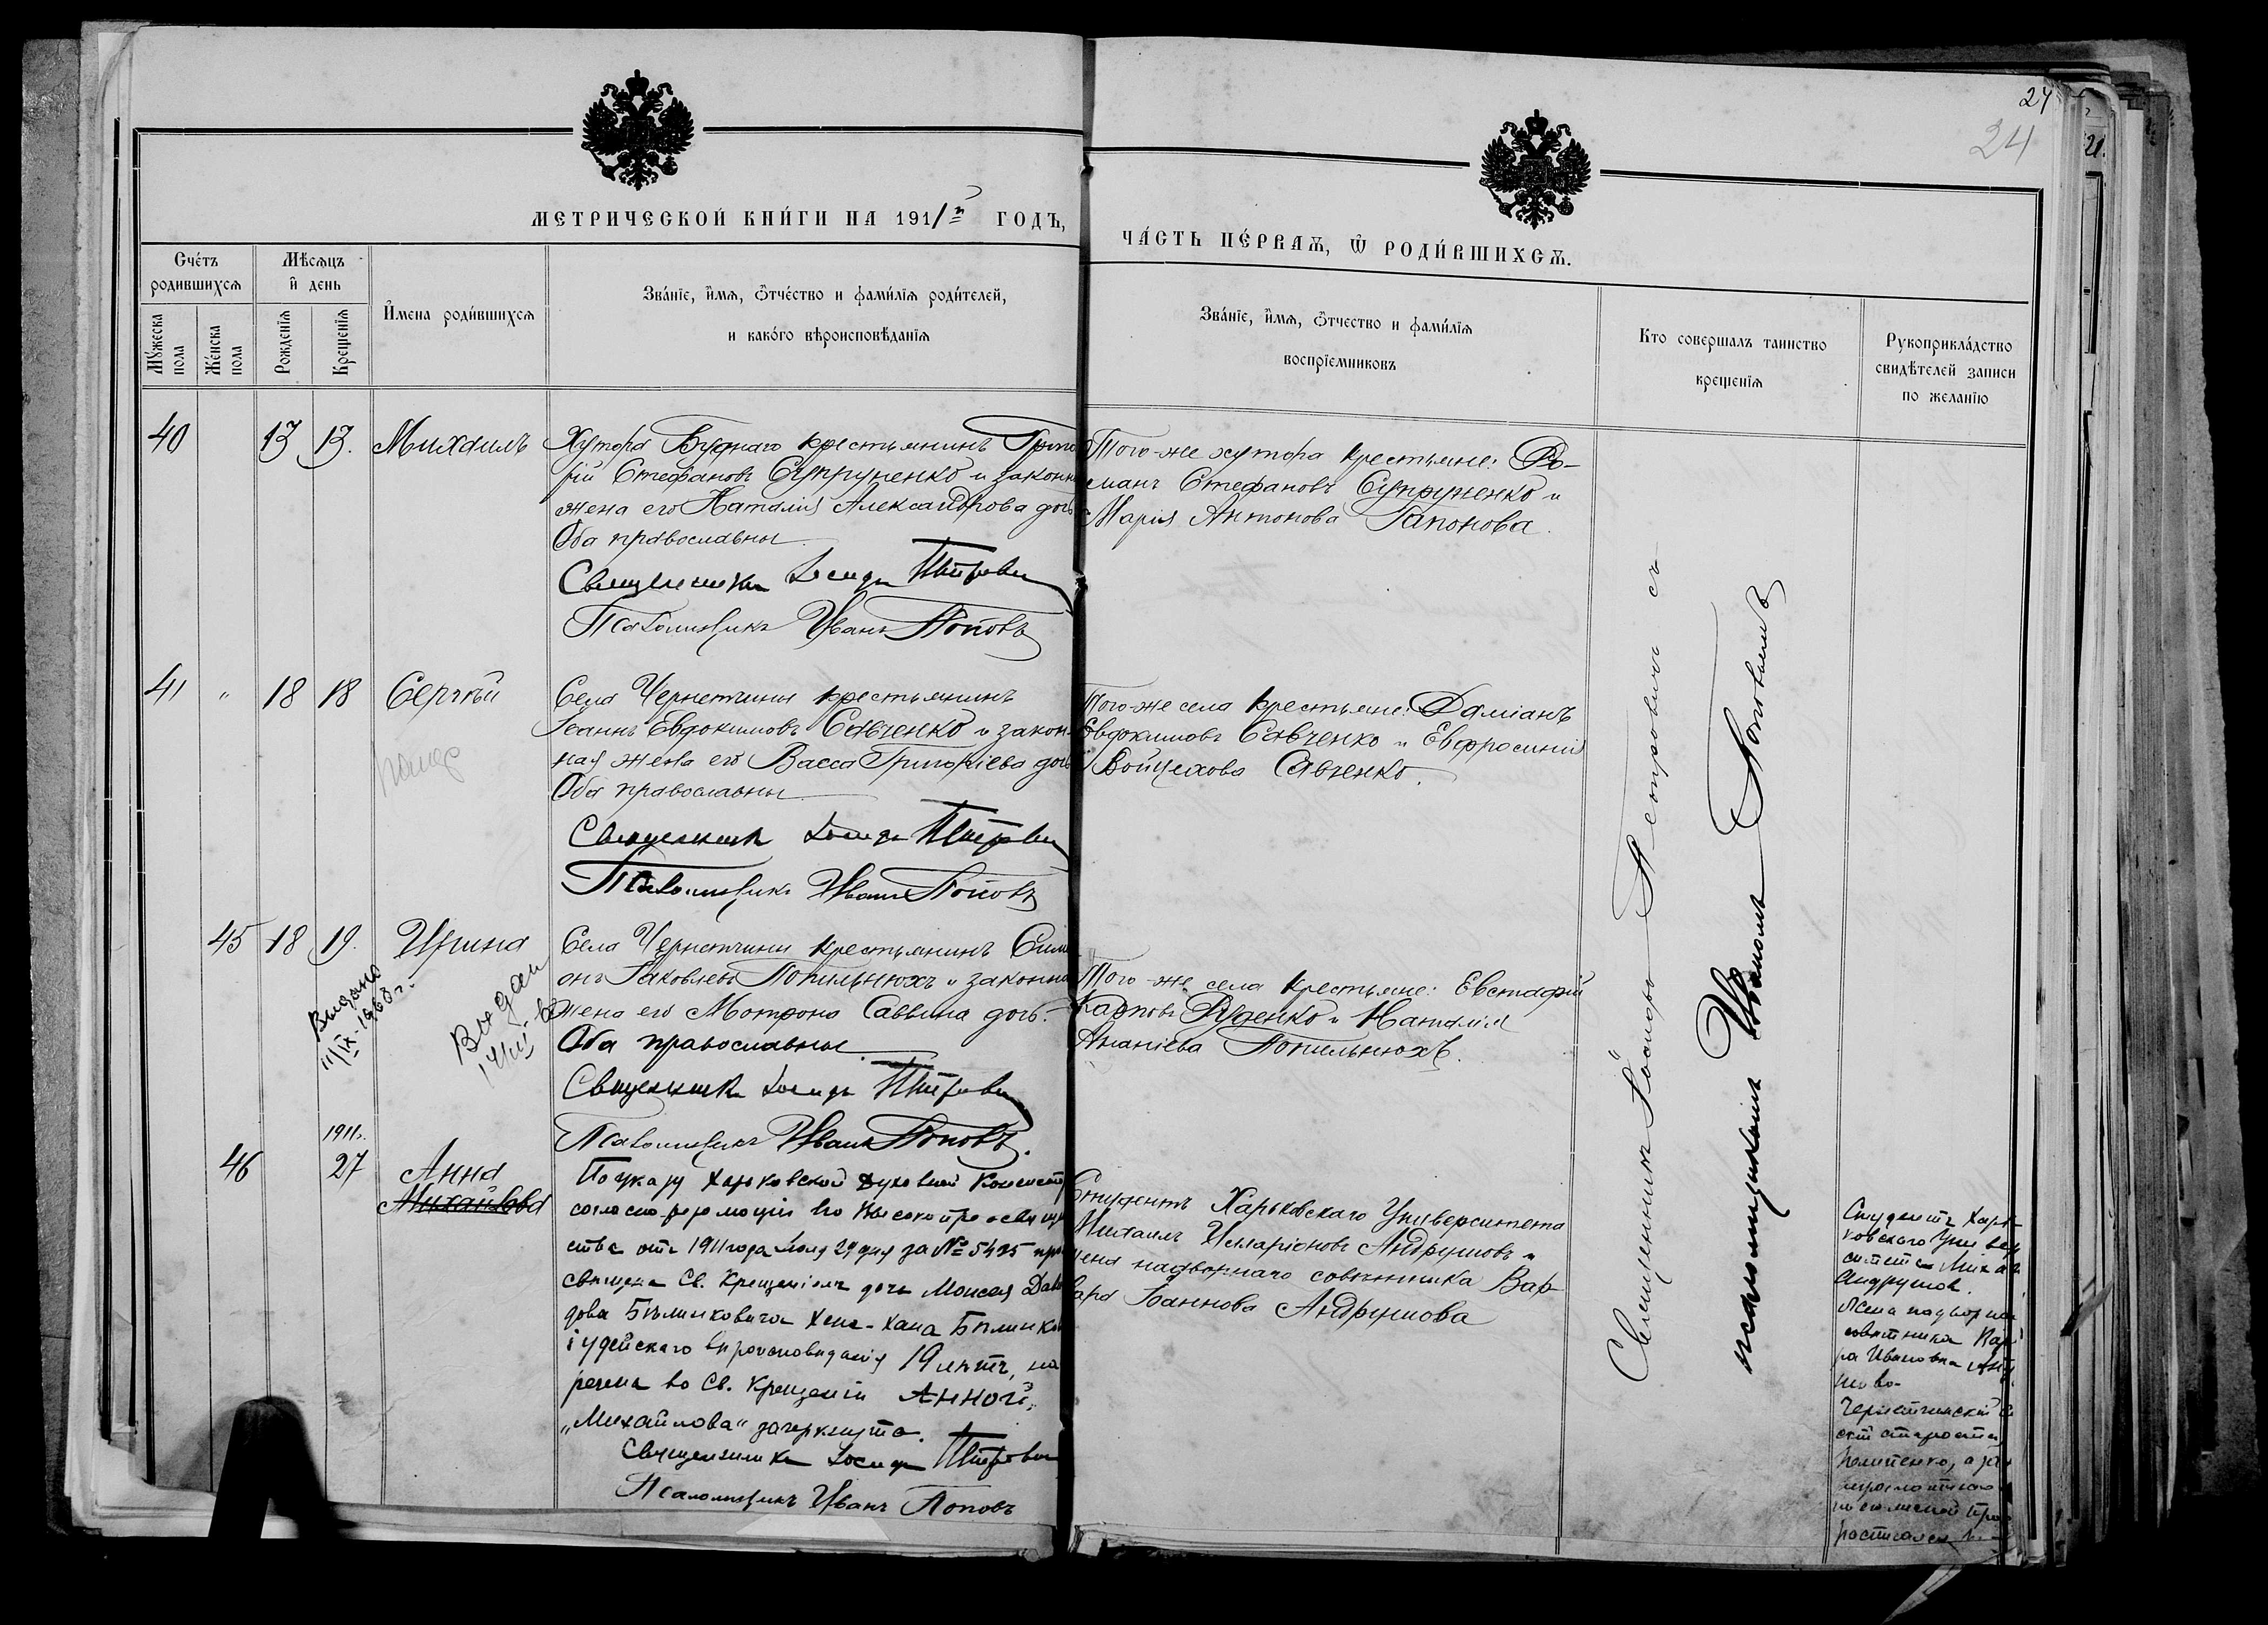 27
24
МЕТРИЧЕСКОЙ КНИ́ГИ НА 1911й ГОДЪ,
ЧА́СТЬ ПЕ́РВАѦ, Ѿ РОДИ́ВШИХСѦ.
Сче́тъ
родившихсѧ
Мѣсѧцъ
и день
Му́жеска
пола
Же́нска
пола
Рожденїѧ
Крещенїѧ
И́мена роди́вшихсѧ
Зва́нїе, и́мѧ, ѻтче́ство и фами́лїѧ роди́телей,
и како́го вѣроисповѣданїѧ
Зва́нїе, и́мѧ, ѻтчество и фами́лїѧ
воспрїемниковъ
Кто совершалъ таинство
крещенїѧ
Рукоприкла́дство
свидѣтелей записи
по желанїю
40 13 13. Михаилъ
Хутора Буднаго крестьянинъ Григо
рій Стефановъ Супруненко и законн
жена его Наталія Александрова дочь
Оба православны
Священникъ Іосифъ Петрович
Псаломщикъ Иванъ Поповъ
Того-же хутора крестьяне: Ро-
манъ Стефановъ Супруненко и
Марія Антонова Гапонова.
41 " 18 18 Сергѣй
Села Чернетчины крестьянинъ
Іоаннъ Евдокимовъ Савченко и закон-
ная жена его Васса Григоріева дочь
Оба православны
Священникъ Іосифъ Петрович
Псаломщикъ Иванъ Поповъ
Того-же села крестьяне: Даміанъ
Евдокимовъ Савченко и Евфросинія
Войцехова Савченко.
45 18 19. Ирина
Выдано
11/IX-1968 г.
Выдан
Села Чернетчины крестьянинъ Сим
онъ Іаковлевъ Попильнюхъ и законна
жена его Мотрона Саввина дочь.-
Оба православны
Священникъ Іосифъ Петрович
Псаломщикъ Иванъ Поповъ.
Того-же села крестьяне: Евстафій
Карповъ Руденко и Наталія
Ананіева Попильнюхъ.
1911г.
46 27 Анна
Михайлова
По указу Харьковской Духовной Консист
согласно резолюціи Его Высокопреосвящ
ства отъ 1911 года Мая 29 дня за № 5425 про
священа Св. Крещеніемъ дочь Моисея Дави
дова Бѣлинковича Хена-Хана Бѣлинко
іудейскаго вѣроисповѣданія 19 лѣтъ, на
речена во Св. Крещеніи Анной,
„Михайлова" зачеркнуто.
Священникъ Іосифъ Петрович
Псаломщикъ Иванъ Поповъ
Студентъ Харьковскаго Университета
Михаилъ Илларіоновъ Андрушовъ и
жена надворнаго совѣтника Вар-
вара Іоаннова Андрушова
Священникъ Іосифъ Петровичъ съ
псаломщикомъ Иваномъ Поповымъ
Студентъ Харь-
ковскаго Универ
ситета Михаи
Андрушов.
Жена надворнаго
совѣтника Варв
ра Ивановна Андр
шова-
Чернетчинскій с
скій староста